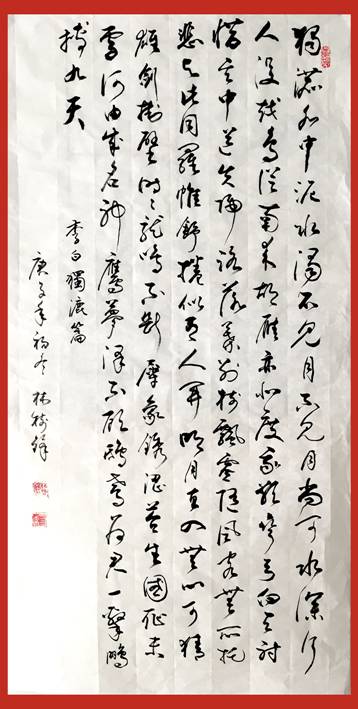 獨漉水中泥水濁不見月不見月尚可水深行
人没越鳥從南來胡雁亦北度我欲彎弓向天射
惜其中道失歸路落葉别樹飄零隨風客無所托
悲與此同羅帷舒捲似有人開明月直入無心可猜
雄劍掛壁時時龍鳴不斷犀象銹澀苔生國恥未
雪何由成名神鷹夢澤不顧鴟鳶爲君一擊鵬
搏九天
李白獨漉篇
庚子年初冬 林